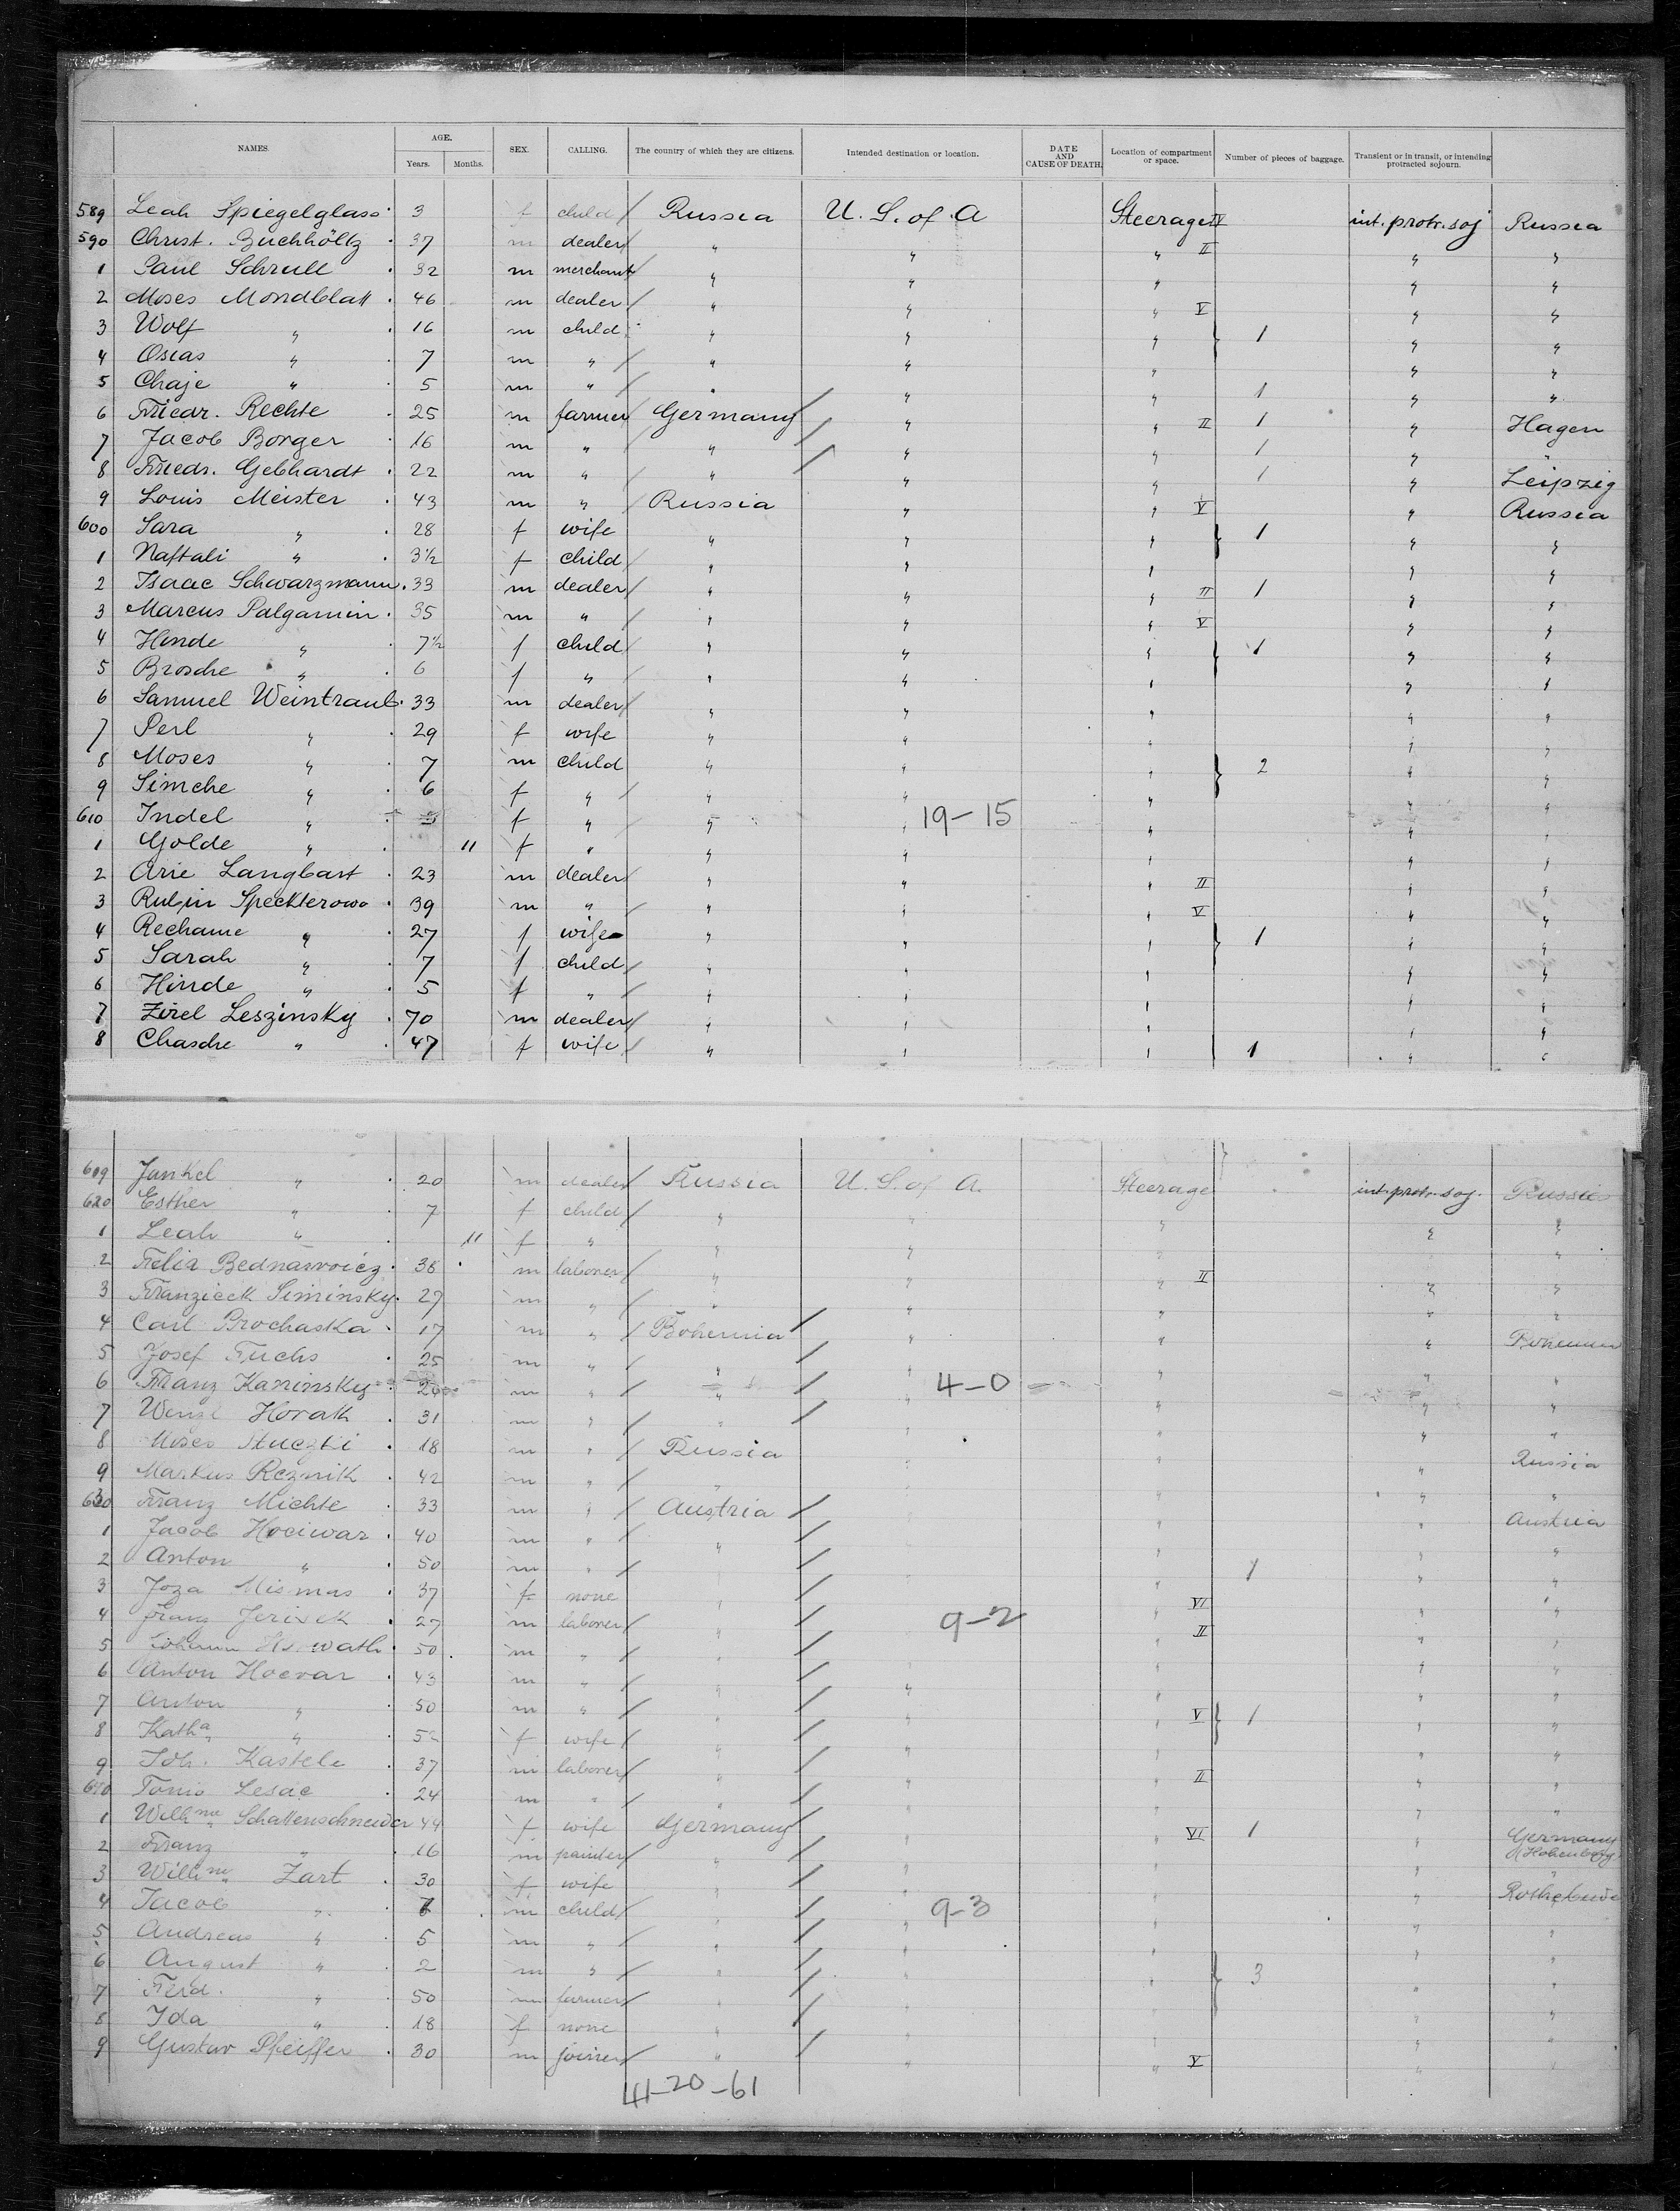 NAMES. AGE. Years. Months. SEX. CALLING. The country of which they are citizens. Intended destination or location. DATE AND CAUSE OF DEATH. Location of compartment or space. Number of pieces of baggage. Transient or in transit, or intending protracted sojourn.
589 Leah Spiegelglass 3 f child Russia U. S. of A Steerage IV int. protr. soj Russia
590 Christ. Buchhöltz 37 m dealer " " " II " "
1 Paul Schrull 32 m merchant " " " " "
2 Moses Mondblatt 46 m dealer " " " V " "
3 Wolf " 16 m child " " " 1 " "
4 Osias " 7 m " " " " " "
5 Chaje " 5 m " " " " 1 " "
6 Friedr. Rechte 25 m farmer Germany " " II 1 " Hagen
7 Jacob Borger 16 m " " " " 1 " "
8 Friedr. Gebhardt 22 m " " " " 1 " Leipzig
9 Louis Meister 43 m " Russia " " V " Russia
600 Sara " 28 f wife " " " 1 " "
1 Naftali " 3½ f child " " " " "
2 Isaac Schwarzmann 33 m dealer " " " II 1 " "
3 Marcus Palgamin 35 m " " " " V " "
4 Hinde " 7½ f child " " " 1 " "
5 Brosche " 6 f " " " " " "
6 Samuel Weintraub 33 m dealer " " " " "
7 Perl " 29 f wife " " " " "
8 Moses " 7 m child " " " 2 " "
9 Simche " 6 f " " " " " "
610 Indel " f " " " 19-15 " " "
1 Golde " 11 f " " " " " "
2 Arie Langbart 23 m dealer " " " II " "
3 Rubin Speckterowo 39 m " " " " V " "
4 Rechame " 27 f wife " " " 1 " "
5 Sarah " 7 f child " " " " "
6 Hinde " 5 f " " " " " "
7 Zirel Leszinsky 70 m dealer " " " " "
8 Chasche " 47 f wife " " " 1 " "
619 Jankel " 20 m dealer Russia U. S. of A. Steerage int. protr. soj. Russia
620 Esther " 7 f child " " " " "
1 Leah " 11 f " " " " " "
2 Felix Bednarwoicz 38 m laborer " " " II " "
3 Franzicek Siminsky 27 m " " " " " "
4 Carl Prochaska 17 m " Bohemia " " " Bohemia
5 Josef Fuchs 25 m " " " " " "
6 Franz Kaninsky 26 m " " " 4-0 " " "
7 Wenzl Horak 31 m " " " " " "
8 Moses 18 m " Russia " " " Russia
9 Markus Reznik 42 m " " " " " "
630 Franz Michte 33 m " Austria " " " Austria
1 Jacob Hociwar 40 m " " " " " "
2 Anton " 50 m " " " " 1 " "
3 Joza Mismas 37 f none " " " VI " "
4 Franz 27 m laborer " " 9-2 " II " "
5 Johann 50 m " " " " " "
6 Anton Hocvar 43 m " " " " " "
7 Anton " 50 m " " " " V 1 " "
8 Katha " f wife " " " " "
9 Joh. Kastele 37 m laborer " " " II " "
640 Tonio Lesac 24 m " " " " " "
1 Willhne Schattenschneider 44 f wife Germany " " VI 1 " Germany
2 Franz " 16 m painter " " " "
3 Willhne Zart 30 f wife " " " "
4 Jacob " 7 m child " " 9-3 " " "
5 Andreas " 5 m " " " " " "
6 August " 2 m " " " " 3 " "
7 Ferd. " 50 m farmer " " " " "
8 Ida " 18 f none " " " " "
9 Gustav Pfeiffer 30 m joiner " " " V " "
41-20-61